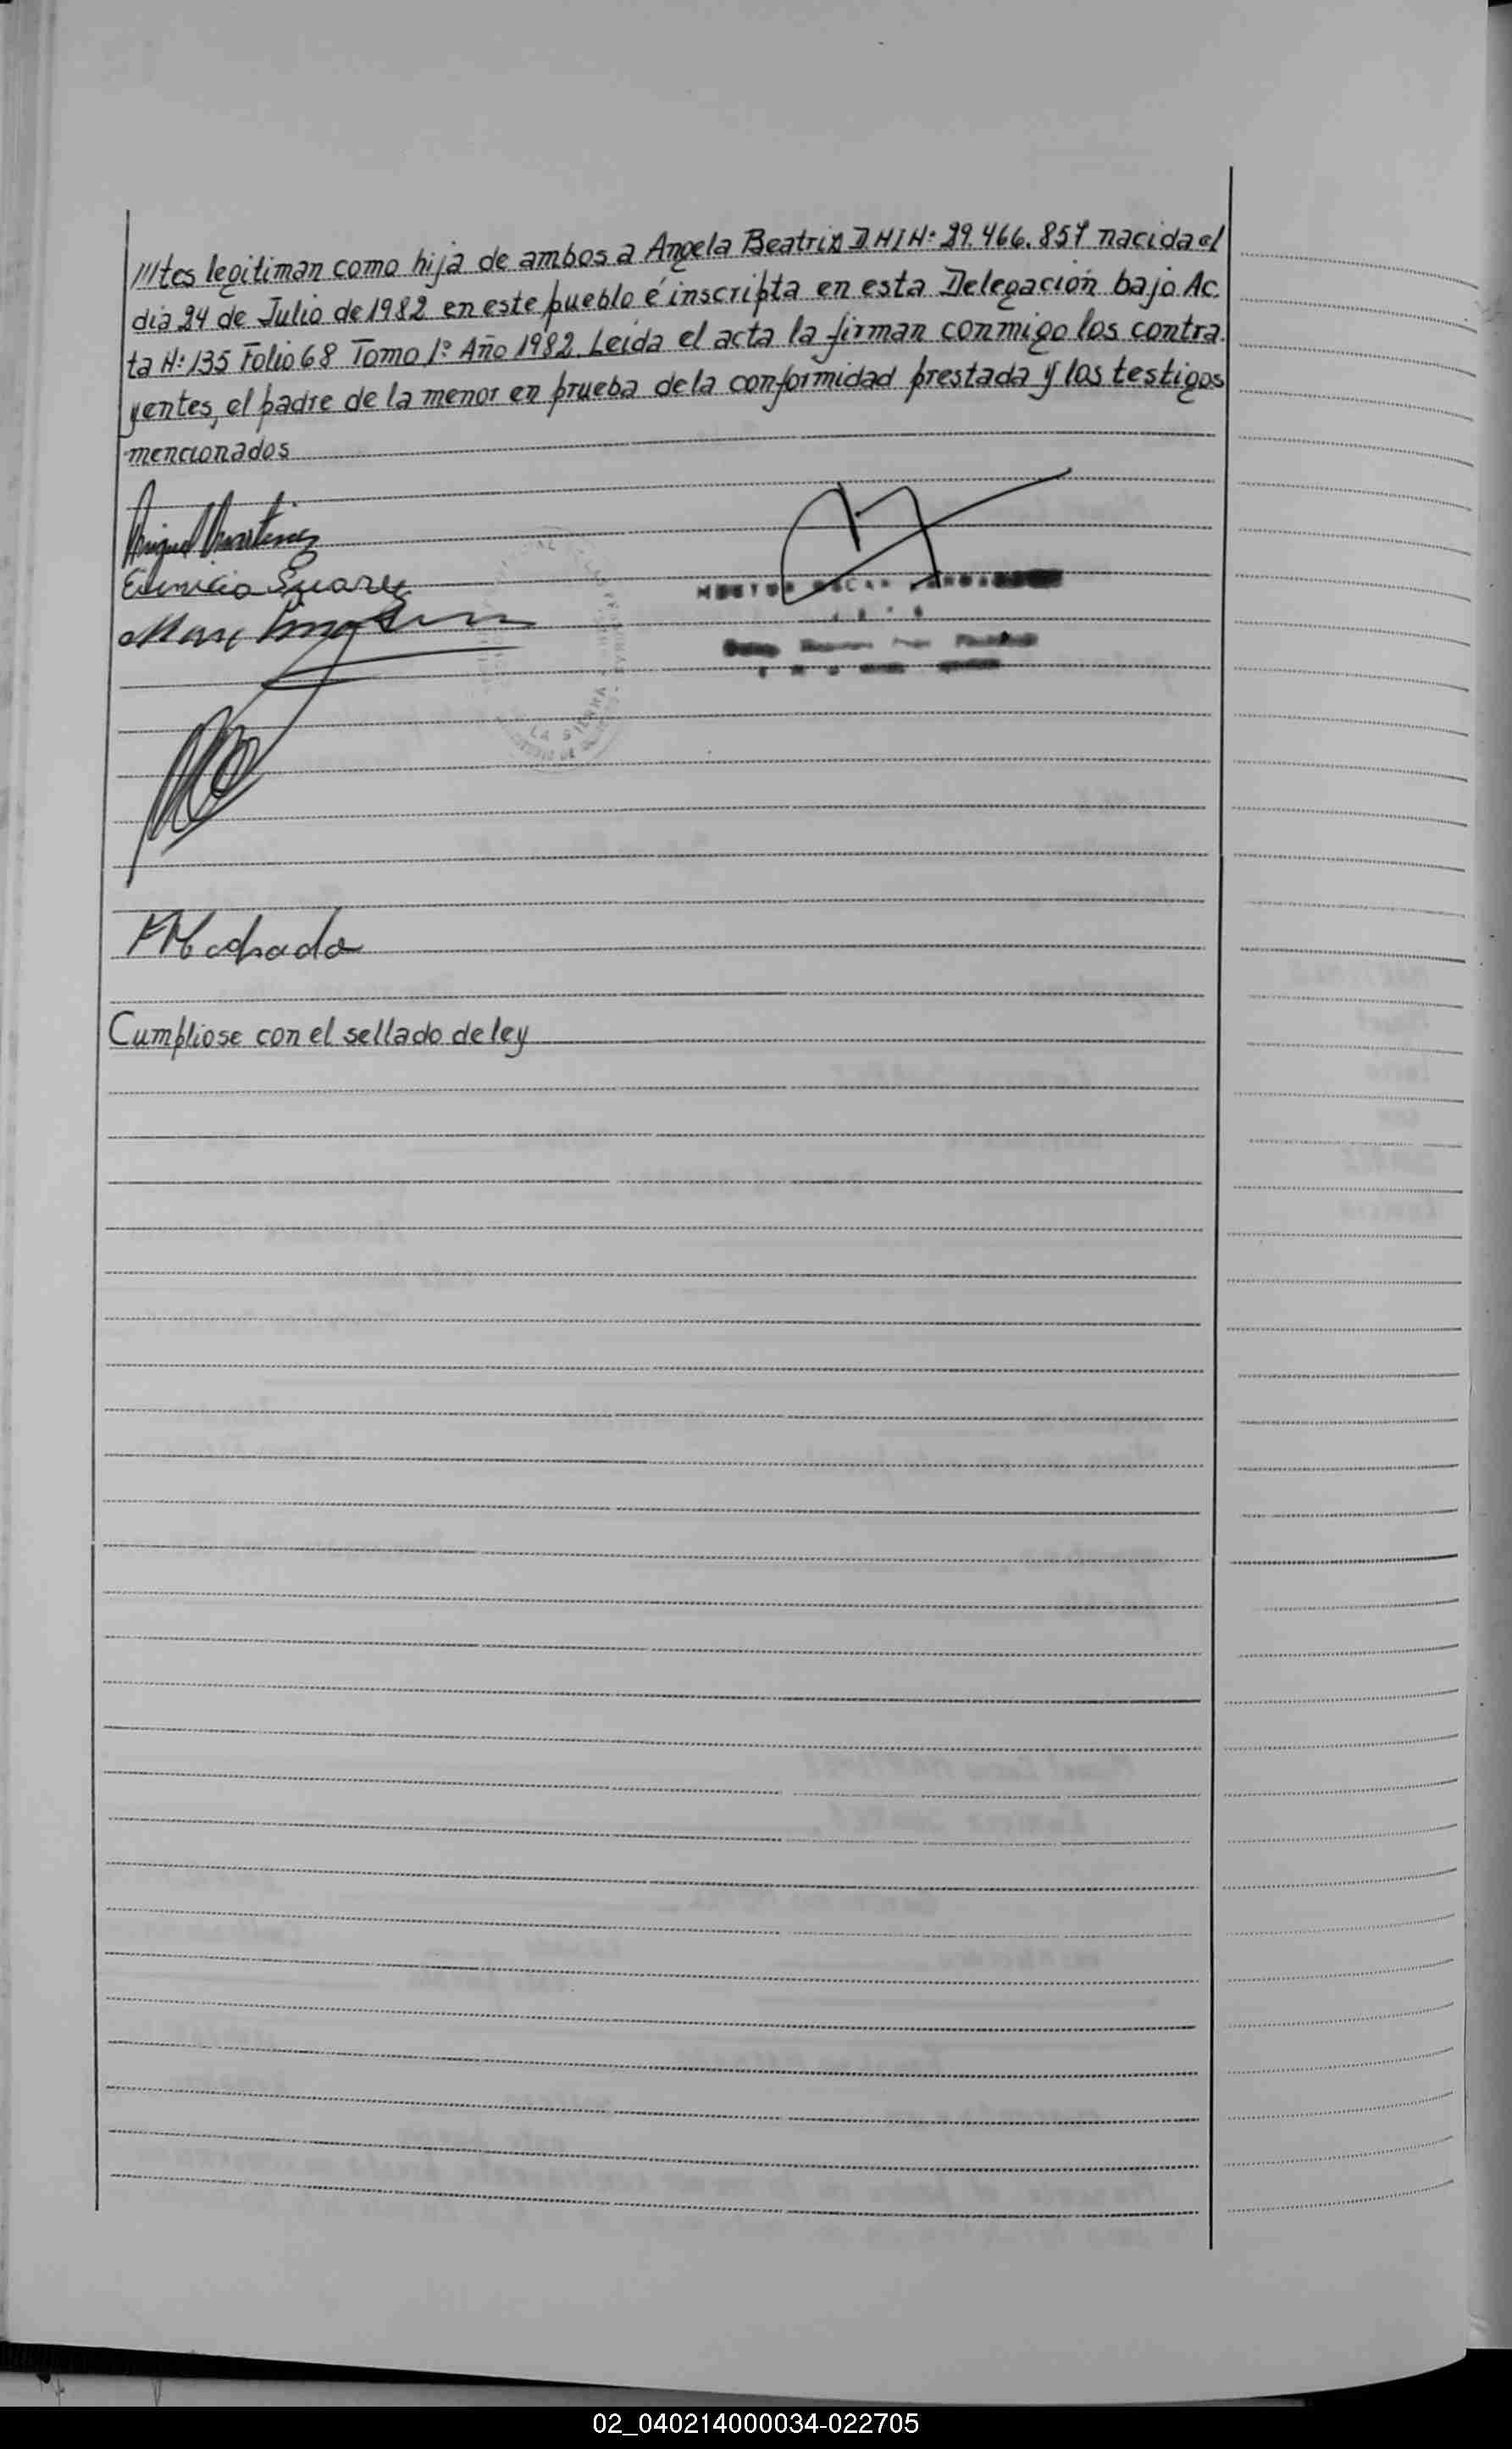 ///tes legitiman como hija de ambos a Angela Beatriz D.N.I.N: 29.466.857 nacida el
día 24 de Julio de 1982 en este pueblo é inscripta en esta Delegación bajo Ac.
ta N: 135 Folio 68 Tomo 1º Año 1982. Leída el acta la firman conmigo los contra.
yentes, el padre de la menor en prueba de la conformidad prestada y los testigos
mencionados
Martinez
Eunicia Suarez
HECTOR OSCAR
LA SIERRA
Machado
Cumpliose con el sellado de ley
02_040214000034-022705